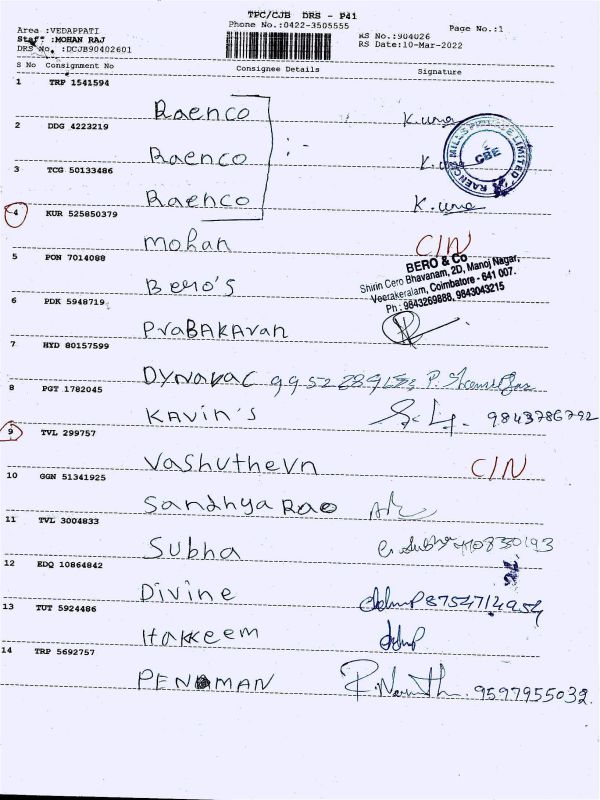 TPC/CJB DRS - P41
Phone No.:0422-3505555
Page No.:1
Area :VEDAPPATI
Staff :MOHAN RAJ
DRS No. :DCJB90402601
RS No.:904026
RS Date:10-Mar-2022
S No Consignment No Consignee Details Signature
1 TRP 1541594
Raenco K.uma
2 DDG 4223219
Raenco K.uma
3 TCG 50133486
Raenco K.uma
RAENCO MILLS PRIVATE LIMITED
CBE
4 KUR 525850379
mohan C/N
5 PON 7014088
Bero's
BERO & Co
Shirin Cero Bhavanam, 2D, Manoj Nagar,
Veerakeralam, Coimbatore - 641 007.
Ph : 9843269888, 9843043215
6 PDK 5948719
PraBAKAran
7 HYD 80157599
DYNAVAC
8 PGT 1782045
KAVIN'S 9843786792
9 TVL 299757
Vashuthevn C/N
10 GGN 51341925
Sandhya Rao
11 TVL 3004833
Subha
12 EDQ 10864842
Divine 8754714954
13 TUT 5924486
Hakkeem
14 TRP 5692757
PENMAN 9597955032.